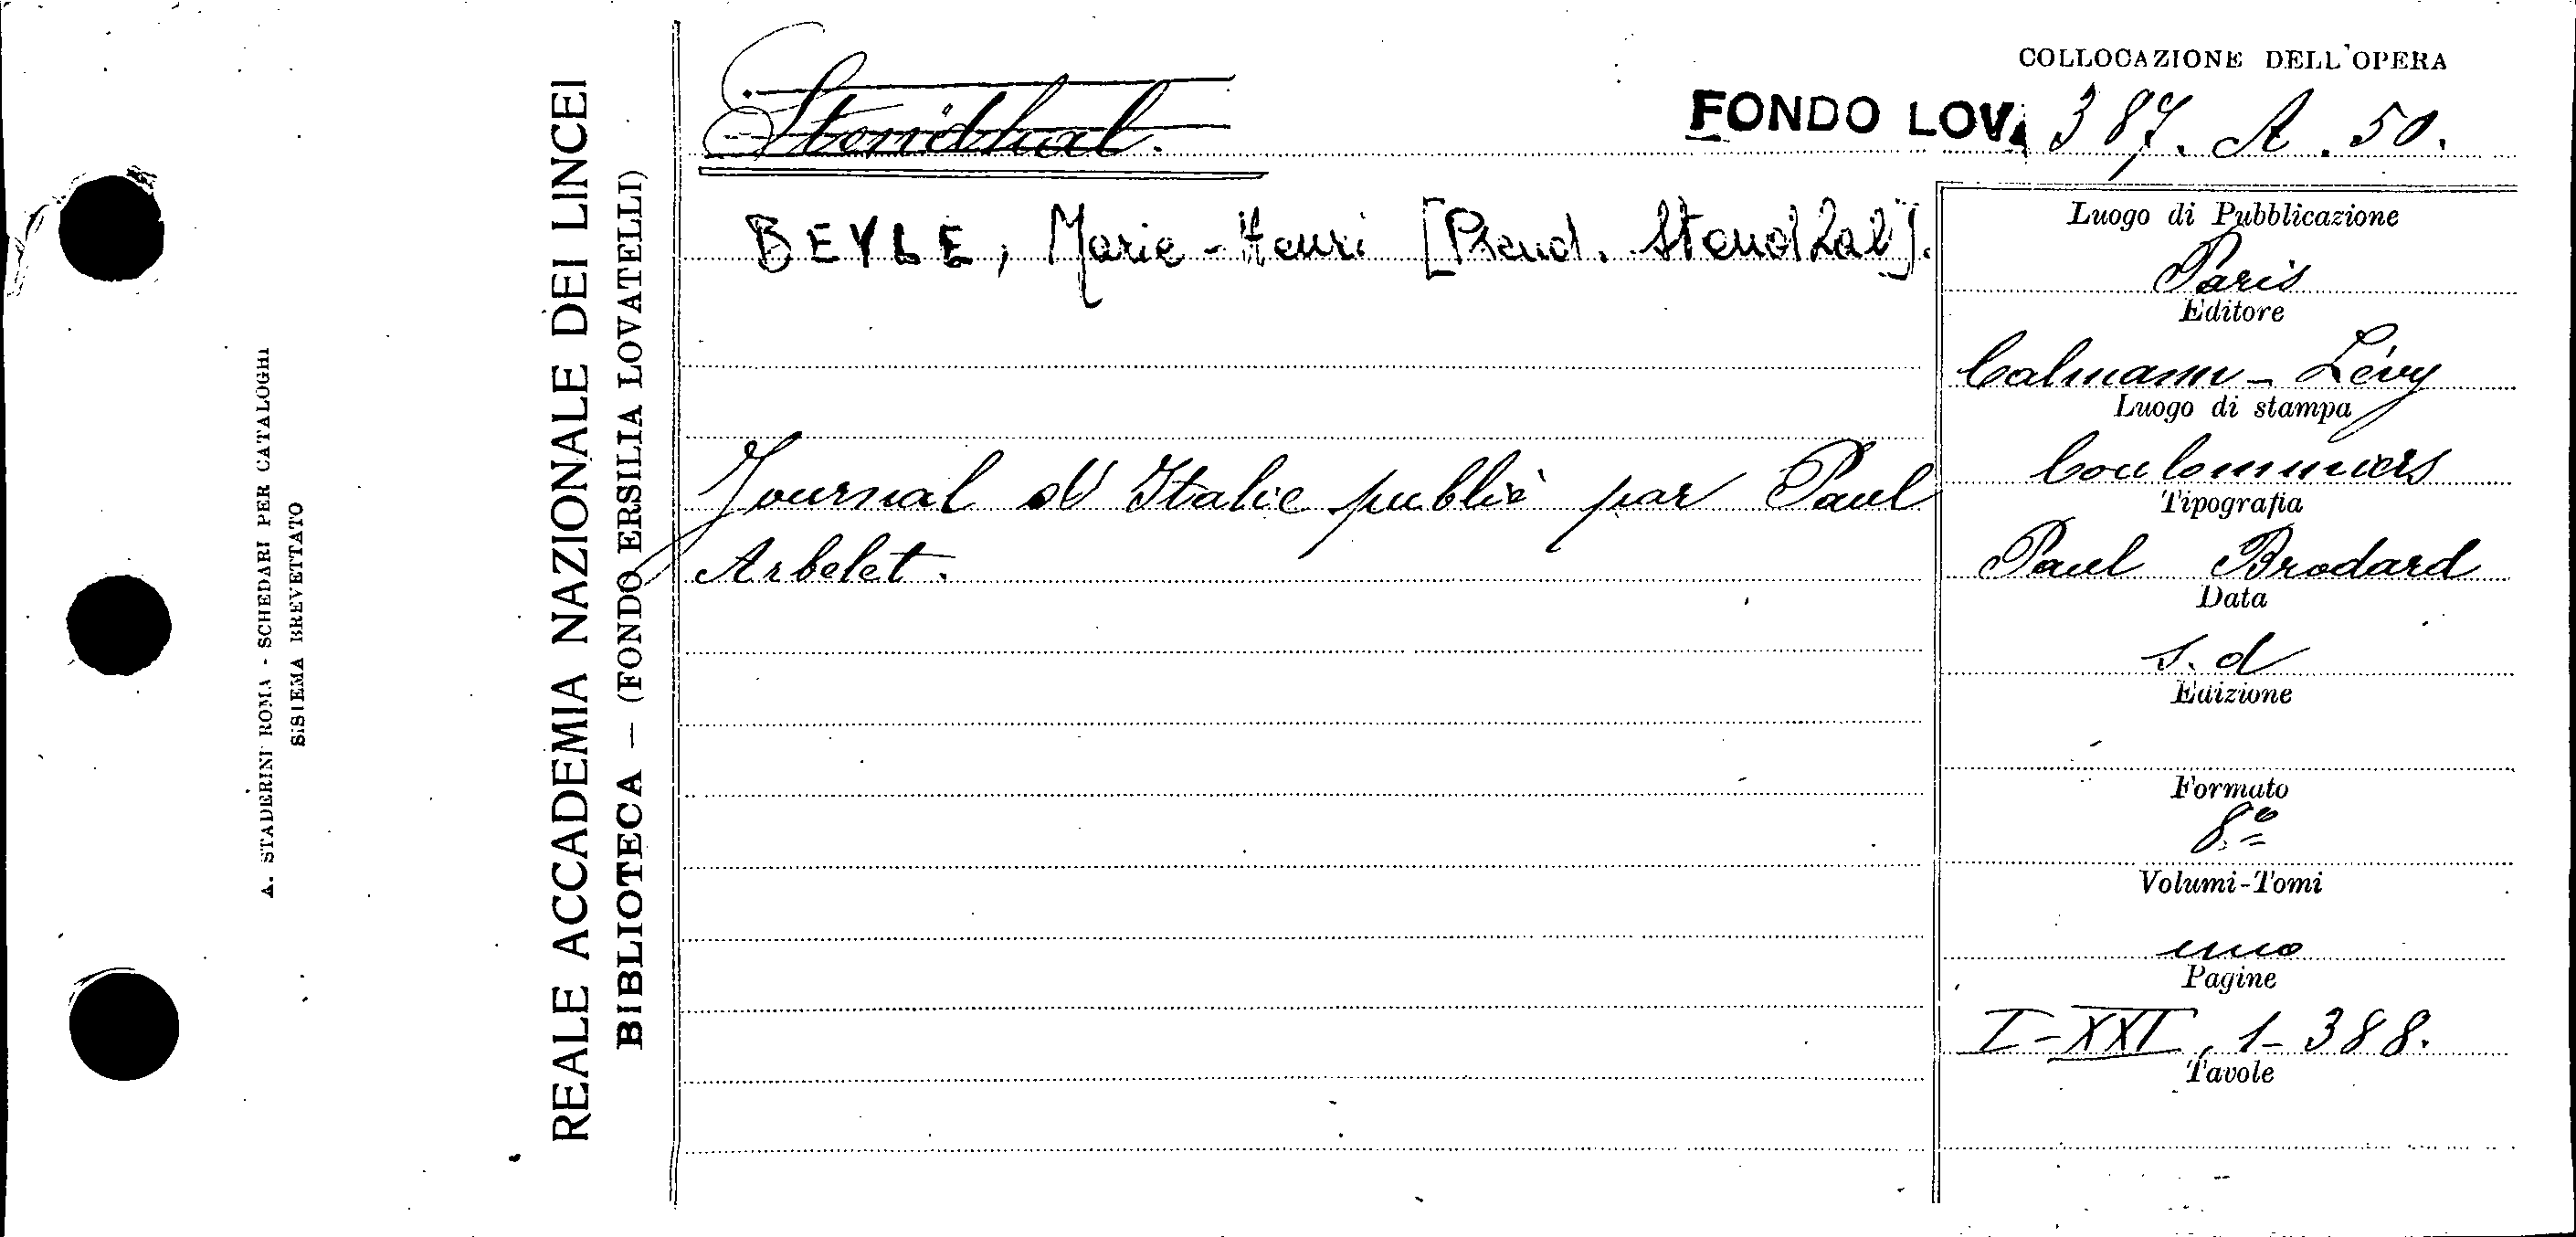 A. STADERINI ROMA - SCHEDARI PER CATALOGHI
SISTEMA BREVETTATO
REALE ACCADEMIA NAZIONALE DEI LINCEI
BIBLIOTECA — (FONDO ERSILIA LOVATELLI)
Stendhal.
COLLOCAZIONE DELL'OPERA
FONDO LOV. 387. A. 50.
BEYLE, Marie-Henri [Pseud. Stendhal].
Journal d'Italie publié par Paul
Arbelet.
Luogo di Pubblicazione
Paris
Editore
Calmann-Lévy
Luogo di stampa
Coulommiers
Tipografia
Paul Brodard
Data
s. d
Edizione
Formato
8º
Volumi-Tomi
uno
Pagine
I-XXI, 1-388.
Tavole